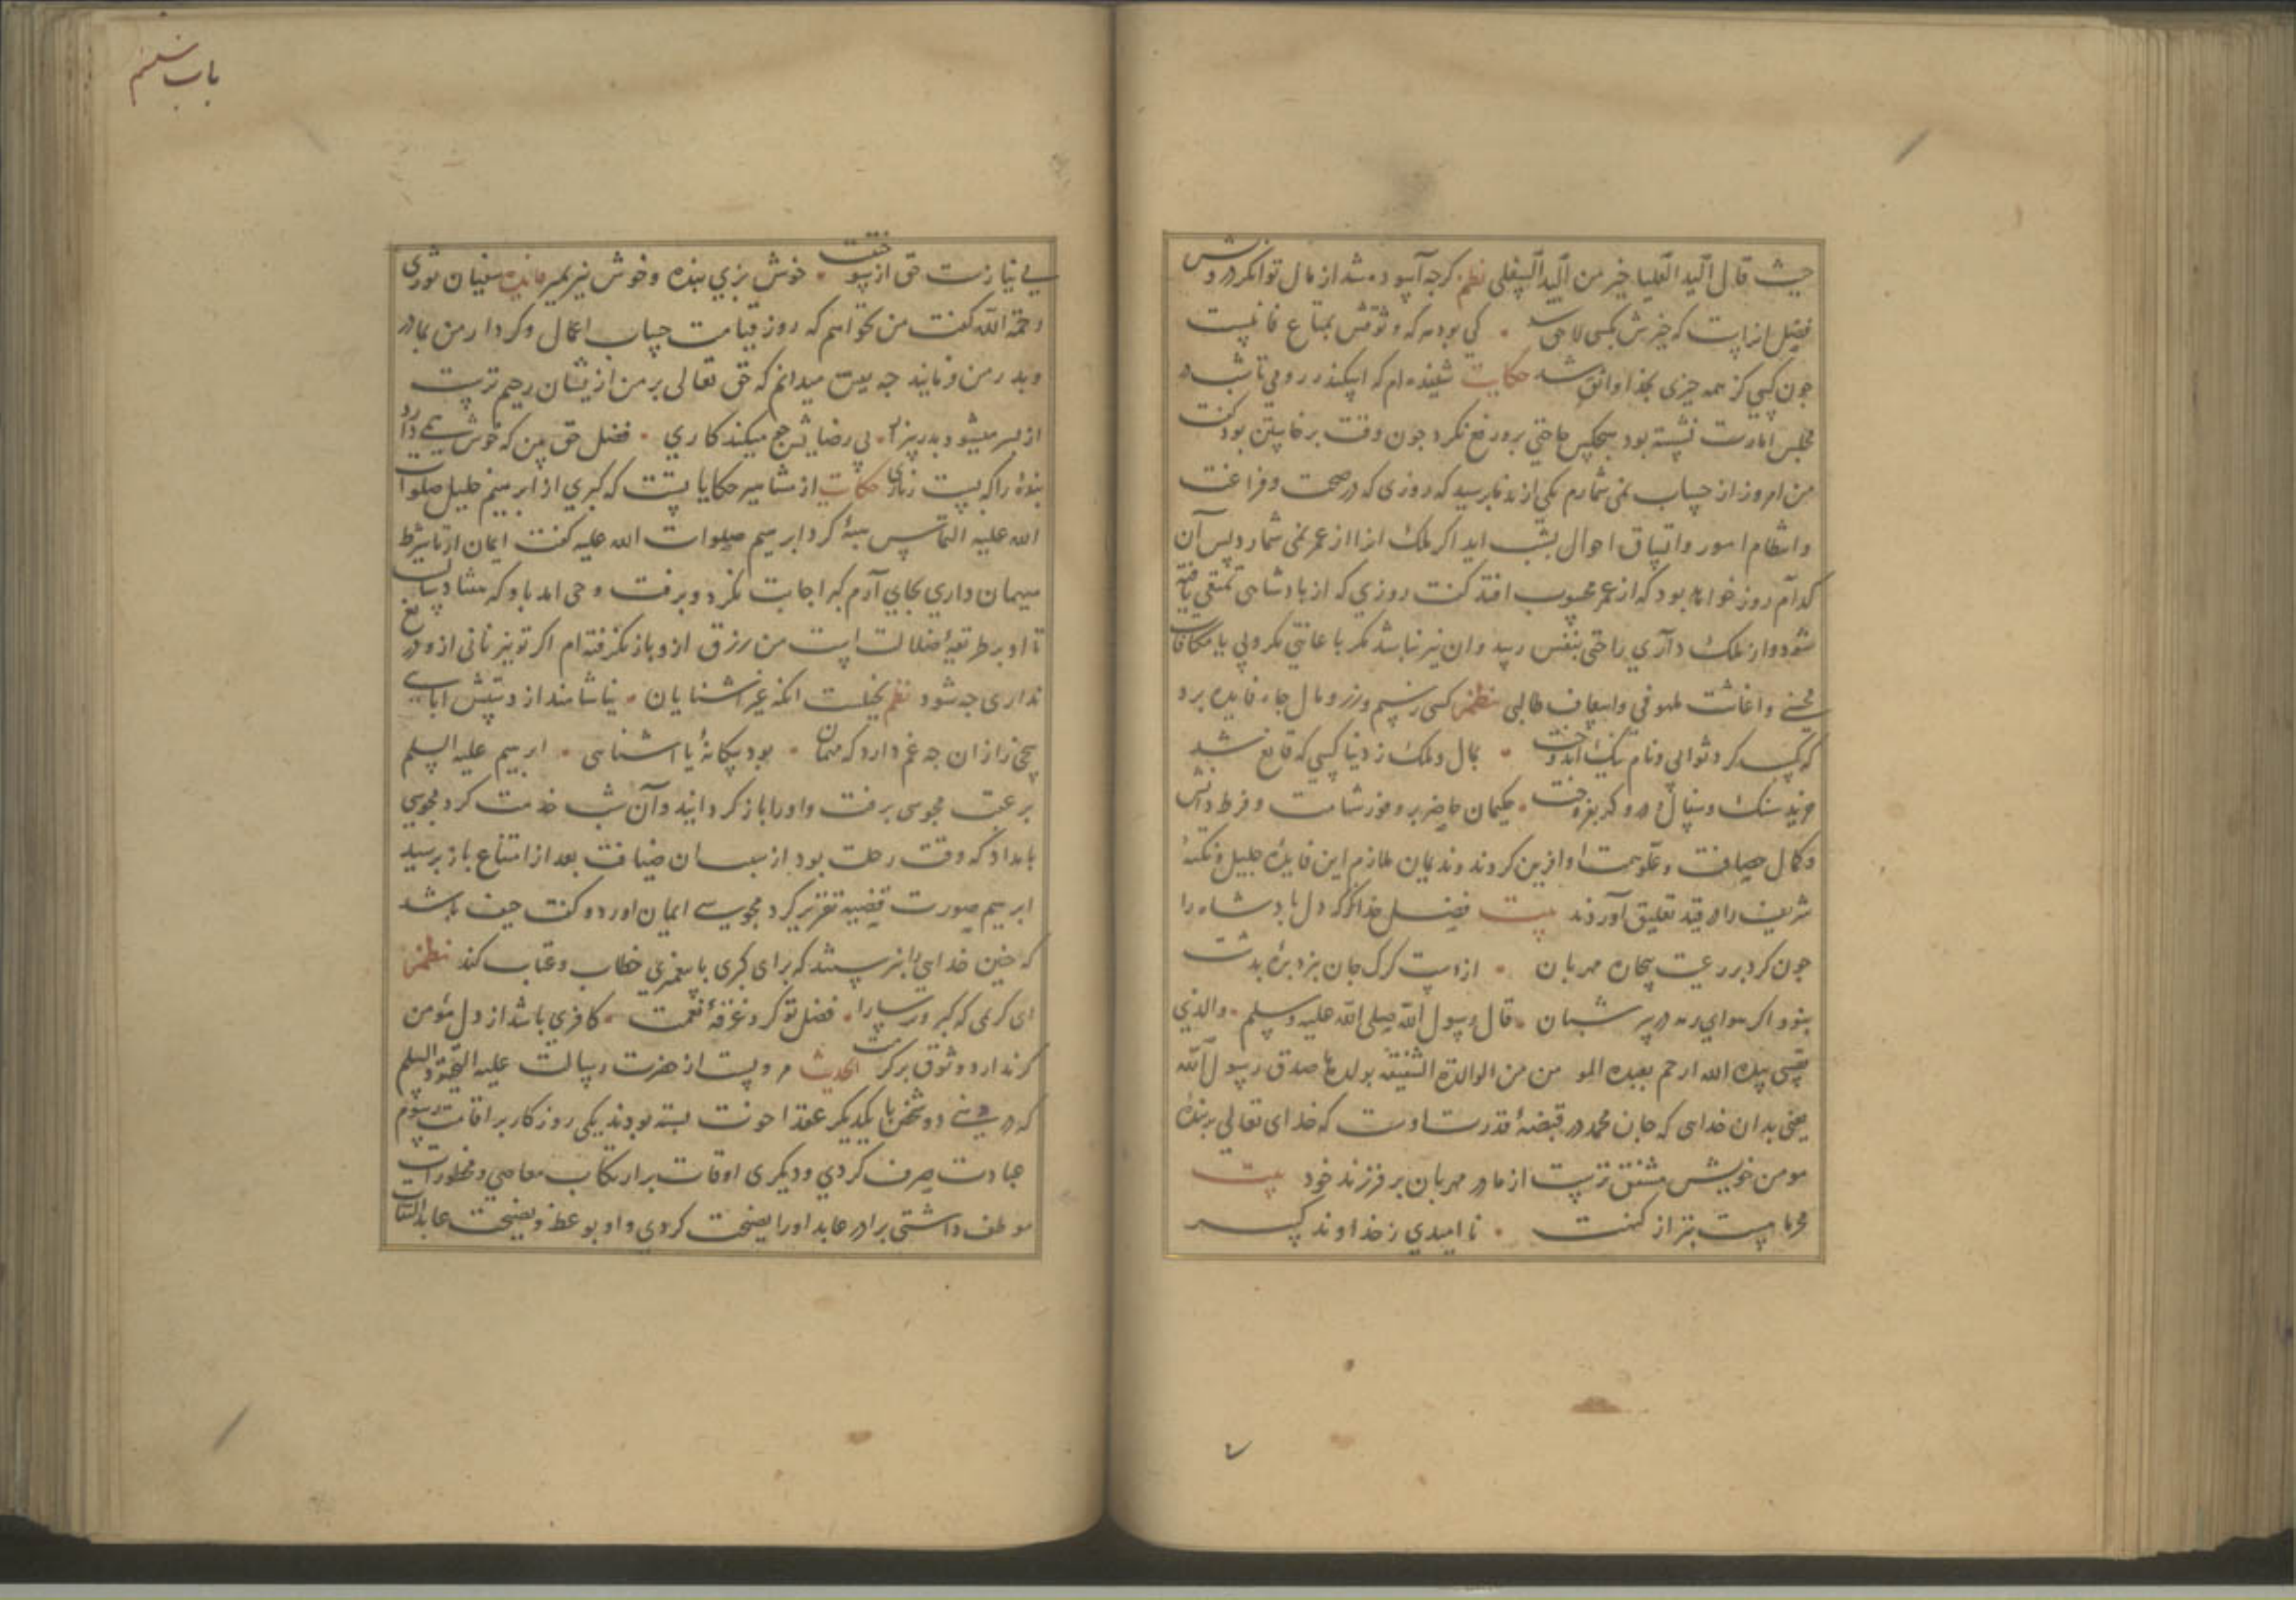 حیث قال الید العلیا خیر من الید السفلی نظم کرجه آسوده شد از مال توانکر درویش
فضیل انراست که خیرش بکسی لاحق شد • کی بود مرکه وثوقش بمتاع فانیست
جون کسی کز همه جیزی بخدا واثق شد حکایت شنیده ام که اسکندر رومی تا شب در
مجلس امارت نشسته بود هیجکس حاجتی برو رفع نکرد جون وقت برخاستن بود کفت
من امروز از حساب نمی شمارم یکی از ندما برسید که روزی که در صحت و فراغت
وانتظام امور واتساق احوال بشب اید اکر ملک انرا از عمر نمی شمارد بس آن
کدام روز خواهد بود که از عمر محسوب افتد کفت روزی که از بادشاهی
شود واز ملک داری راحتی بنفس رسد وان نیز نباشد مکر با عانتی مکروبی یا مکافات
محسنی واغاثت ملهوفی واسعاف طالبی نظم کسی زسیم وزر و مال جاه فایده برد
که کسب کرد ثوابی ونام نیک اندوخت • بمال و ملک ز دنیا کسی که قانع شد
خرید سنک وسفال و در و کهر بفروخت • حکیمان حاضر بر وفور شهامت وفرط دانش
وکمال حصافت وعلو همت او افرین کردند وندیمان ملازم این فایده جلیل ونکتهٔ
شریف را در قید تعلیق آوردند بیت فضل خدا نکر که دل بادشاه را
جون کرد بر رعیت بیجاره مهربان • از دست کرک جان نبرد برهٔ بدشت
نبود اکر هوای رمه در سر شبان • قال رسول الله صلی الله علیه وسلم • والذی
نفسی بیده الله ارحم بعبده المومن من الوالدة الشفیقة بولدها صدق رسول الله
یعنی بدان خدای که جان محمد در قبضهٔ قدرت اوست که خدای تعالی بر بندهٔ
مومن خویش مشفق ترست از مادر مهربان بر فرزند خود بیت
مجرما بتر از کنهت • نا امیدی ز خداوند
باب ششم
بی نیازست حق از بوست • خوش بزی بنده وخوش نیز بمیر سفیان ثوری
رحمة الله کفت من نخواهم که روز قیامت حساب اعمال وکردار من بمادر
وبدر من فرمایند جه یقین میدانم که حق تعالی بر من ازیشان رحیم ترست
از سر میشود بدر بیزار • بی رضایش جو میکند کاری • فضل حق بین که خوش همی دارد
بندهٔ را که بست زناری حکایت از مشاهیر حکایا یست که کبری از ابرهیم خلیل صلوات
الله علیه التماس کرد ابرهیم صلوات الله علیه کفت ایمان ار تا شرط
میهمان داری بجای آرم کبر اجابت نکرد وبرفت وحی امد باو که هفتاد سالست
تا او بر طریقهٔ ضلالت است من رزق ازو باز نکرفته ام اکر تو نیز نانی ازو دریغ
نداری جه شود نظم بخیلست انکه غیر اشنایان • نیاشامند از دستش ابایی
سخی زاد ان جه غم دارد که مهمان • بود بیکانهٔ یا اشنایی • ابرهیم علیه السلم
بر عقب مجوسی برفت واورا باز کردانید وآن شب خدمت کرد مجوسی
بامداد که وقت رحلت بود از سبب ان ضیافت بعد از امتناع باز برسید
ابرهیم صورت قضیه تقریر کرد مجوسی ایمان اورد و کفت حیف باشد
که جنین خدایی را نبرستند که برای کبری با بیغمبری خطاب وعتاب کند نظم
ای کریمی که کبر وترسا را • فضل تو کرد غرقهٔ نعمت • کافری باشد از دل مؤمن
کر ندارد وثوق بر کرمت الحدیث مرویست از حضرت رسالت علیه التحیة والسلم
که در دو شخص با یکدیکر عقد اخوت بسته بودند یکی روزکار بر اقامت رسوم
عبادت صرف کردی ودیکری اوقات بر ارتکاب معاصی ومحظورات
موظف داشتی برادر عابد اورا نصیحت کردی واو بوعظ ونصیحت عابد التفات